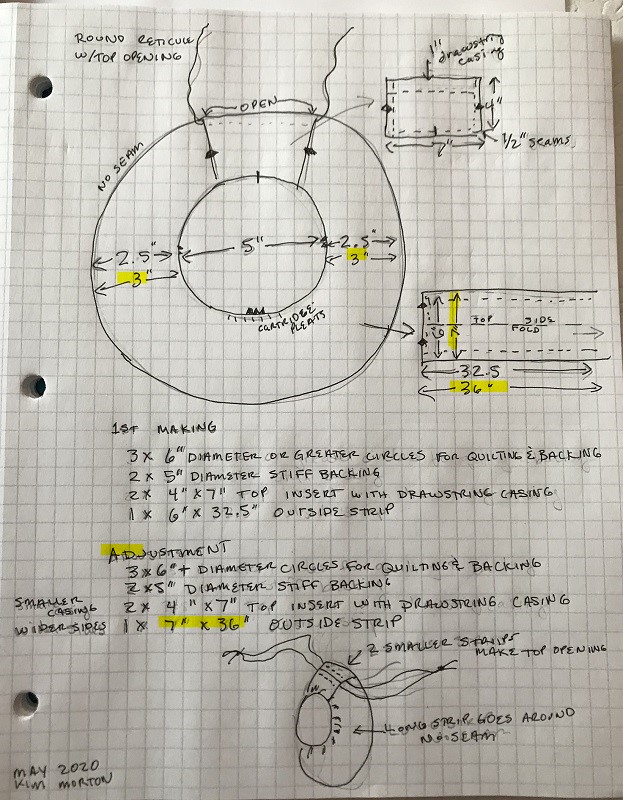 ROUND RETICULE
W/TOP OPENING
1" drawstring
casing
OPEN
4"
7"
1/2" seams
NO SEAM
2.5"
3"
5"
2.5"
3"
CARTRIDGE
PLEATS
6"
7"
TOP SIDE
FOLD
32.5
36"
1ST MAKING
3 x 6" DIAMETER OR GREATER CIRCLES FOR QUILTING & BACKING
2 x 5" DIAMETER STIFF BACKING
2 x 4" x 7" TOP INSERT WITH DRAWSTRING CASING
1 x 6" x 32.5" OUTSIDE STRIP
ADJUSTMENT
3 x 6"+ DIAMETER CIRCLES FOR QUILTING & BACKING
2 x 5" DIAMETER STIFF BACKING
SMALLER
CASING
2 x 4" x 7" TOP INSERT WITH DRAWSTRING CASING
WIDER SIDES
1 x 7" x 36" OUTSIDE STRIP
2 SMALLER STRIPS
MAKE TOP OPENING
LONG STRIP GOES AROUND
NO SEAM
MAY 2020
KIM MORTON